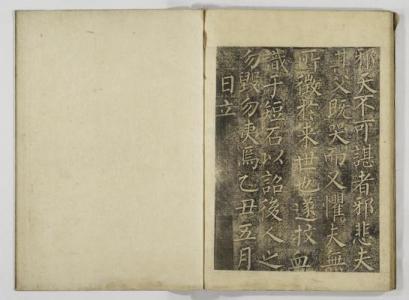 邪天不可諶者邪悲夫
其父既哭而又懼夫無
所徵於来世也遂抆血
識于短石以詔後人之
勿毀勿夷焉乙丑五月
日立